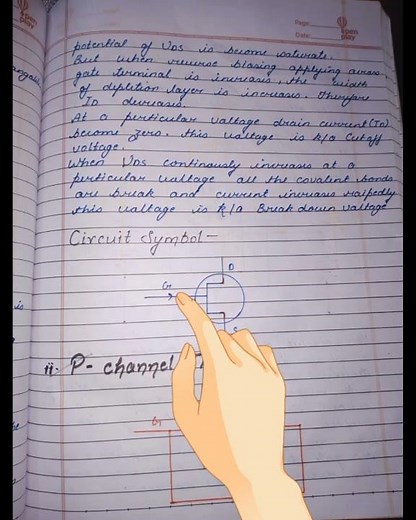 Page
Date
pen
play
potential of VDS is become saturate.
But when reverse biasing applying across
gate terminal is increasis, the width
of depletion layer is increases. Therefore
ID decreases.
At a perticular valtage drain current (ID)
become zero. this valtage is k/a Cutoff
voltage.
When VDS continously increases at a
perticular valtage all the covalent bonds
are break and current increases
this valtage is k/a Break down valtage
Circuit Symbol -
D
G
S
ii. P- channel
G